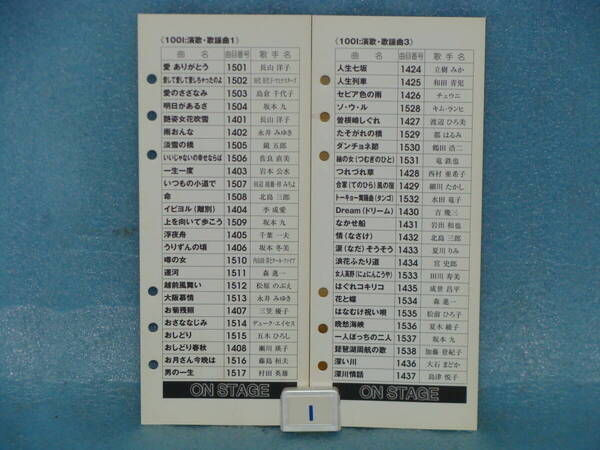 〈1001:演歌・歌謡曲1〉
曲 名 曲目番号 歌 手 名
愛 ありがとう 1501 長山 洋子
愛して愛して愛しちゃったのよ 1502
愛のさざなみ 1503 島倉 千代子
明日があるさ 1504 坂本 九
艶姿女花吹雪 1401 長山 洋子
雨おんな 1402 永井 みゆき
淡雪の橋 1505 鏡 五郎
いいじゃないの幸せならば 1506 佐良 直美
一生一度 1403 岩本 公水
いつもの小道で 1507 田辺 靖雄・梓 みちよ
命 1508 北島 三郎
イビヨル (離別) 1404 李 成愛
上を向いて歩こう 1509 坂本 九
浮夜舟 1405 千葉 一夫
うりずんの頃 1406 坂本 冬美
噂の女 1510 内山田 洋とクール・ファイブ
運河 1511 森 進一
越前風舞い 1512 松原 のぶえ
大阪慕情 1513 永井 みゆき
お菊残照 1407 三笠 優子
おさななじみ 1514 デューク・エイセス
おしどり 1515 五木 ひろし
おしどり春秋 1408 瀬川 瑛子
お月さん今晩は 1516 藤島 桓夫
男の一生 1517 村田 英雄
ON STAGE
〈1001:演歌・歌謡曲3〉
曲 名 曲目番号 歌 手 名
人生七坂 1424 立樹 みか
人生列車 1425 和田 青児
セピア色の雨 1426 チェウニ
ソ・ウ・ル 1528 キム・ランヒ
曽根崎しぐれ 1427 渡辺 ひろ美
たそがれの横 1529 都 はるみ
ダンチョネ節 1530 鶴田 浩二
紬の女 (つむぎのひと) 1531 竜 鉄也
つれづれ草 1428 西村 亜希子
合掌 (てのひら) 風の宿 1429 細川 たかし
トーキョー舞踏曲 (タンゴ) 1532 水田 竜子
Dream (ドリーム) 1430 吉 幾三
なかせ船 1431 岩出 和也
情 (なさけ) 1432 北島 三郎
涙 (なだ) そうそう 1433 夏川 りみ
浪花ふたり道 1434 宮 史郎
女人高野 (にょにんこうや) 1533 田川 寿美
はぐれコキリコ 1435 成世 昌平
花と蝶 1534 森 進一
はなむけ祝い唄 1535 松前 ひろ子
晩愁海峡 1536 夏木 綾子
一人ぼっちの二人 1537 坂本 九
琵琶湖周航の歌 1538 加藤 登紀子
深い川 1436 大石 まどか
深川情話 1437 島津 悦子
ON STAGE
1